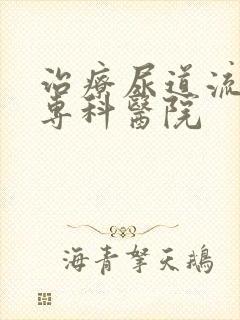 治療尿道流
專科醫院
海青拏天鵝